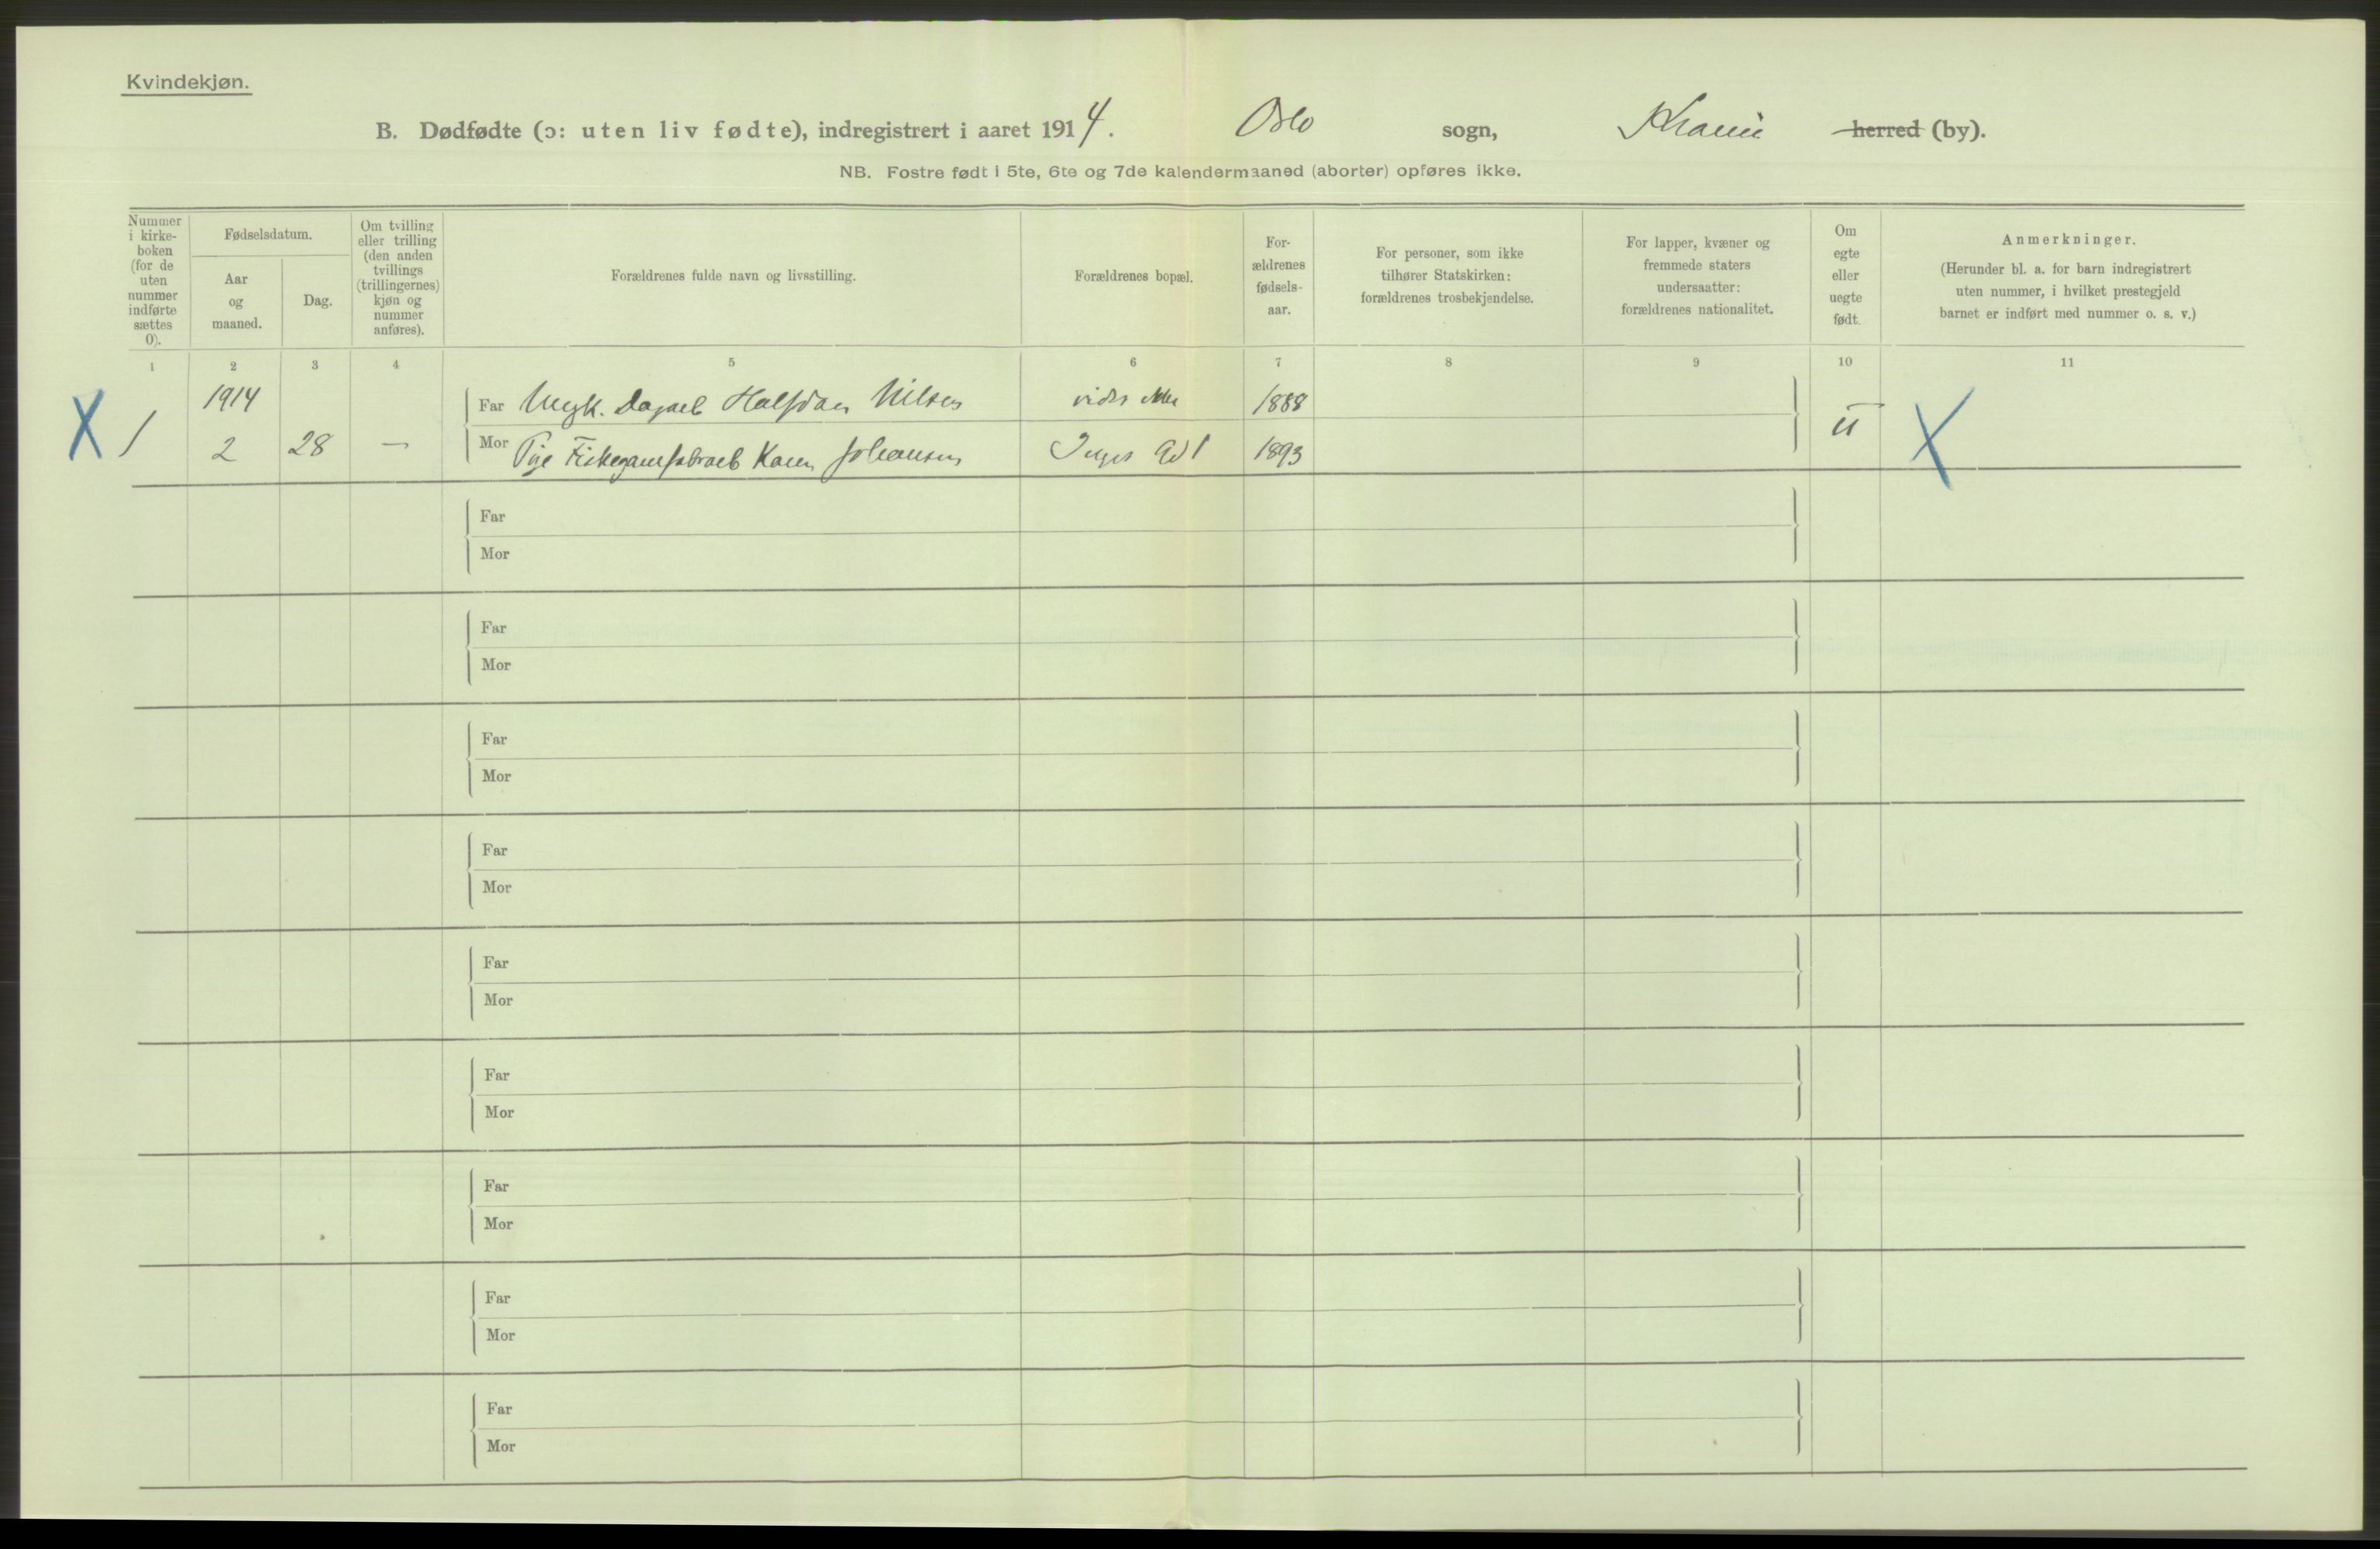 Kvindekjøn.
B. Dødfødte (ɔ: uten liv fødte), indregistrert i aaret 1914. Oslo sogn, Kra herred (by).
NB. Fostre født i 5te, 6te og 7de kalendermaaned (aborter) opføres ikke.
Nummer i kirke- boken (for de uten nummer indførte sættes 0).
Fødselsdatum.
Aar og maaned.
Dag.
Om tvilling eller trilling (den anden tvillings (trillingernes) kjøn og nummer anføres).
Forældrenes fulde navn og livsstilling.
Forældrenes bopæl.
For- ældrenes fødsels- aar.
For personer, som ikke tilhører Statskirken: forældrenes trosbekjendelse.
For lapper, kvæner og fremmede staters undersaatter: forældrenes nationalitet.
Om egte eller uegte født.
Anmerkninger.
(Herunder bl. a. for barn indregistrert uten nummer, i hvilket prestegjeld barnet er indført med nummer o. s. v.)
1 2 3 4 5 6 7 8 9 10 11
X 1 1914 Far Ungk. Dagarb Halfdan Nilsen vides ikke 1888 U X
2 28 — Mor Pige Karen Johansen 1893
Far
Mor
Far
Mor
Far
Mor
Far
Mor
Far
Mor
Far
Mor
Far
Mor
Far
Mor
Far
Mor